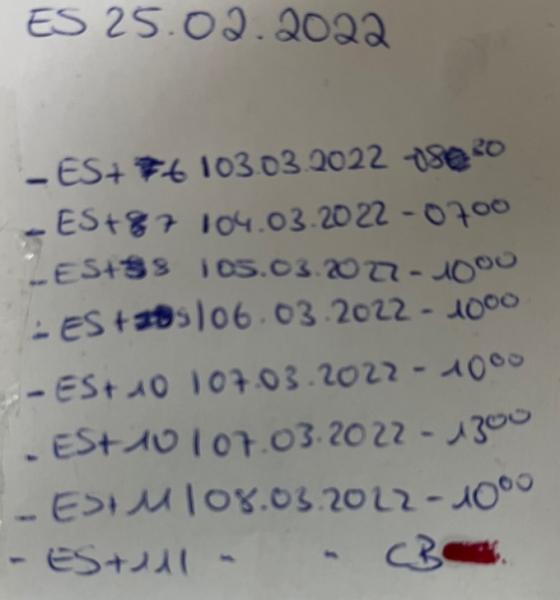 ES 25.02.2022
- ES+ 6 | 03.03.2022 - 08 30
- ES+ 7 | 04.03.2022 - 0700
- ES+ 8 | 05.03.2022 - 1000
- ES+ 9 | 06.03.2022 - 1000
- ES+10 | 07.03.2022 - 1000
- ES+10 | 07.03.2022 - 1300
- ES+11 | 08.03.2022 - 1000
- ES+11 | - - CB